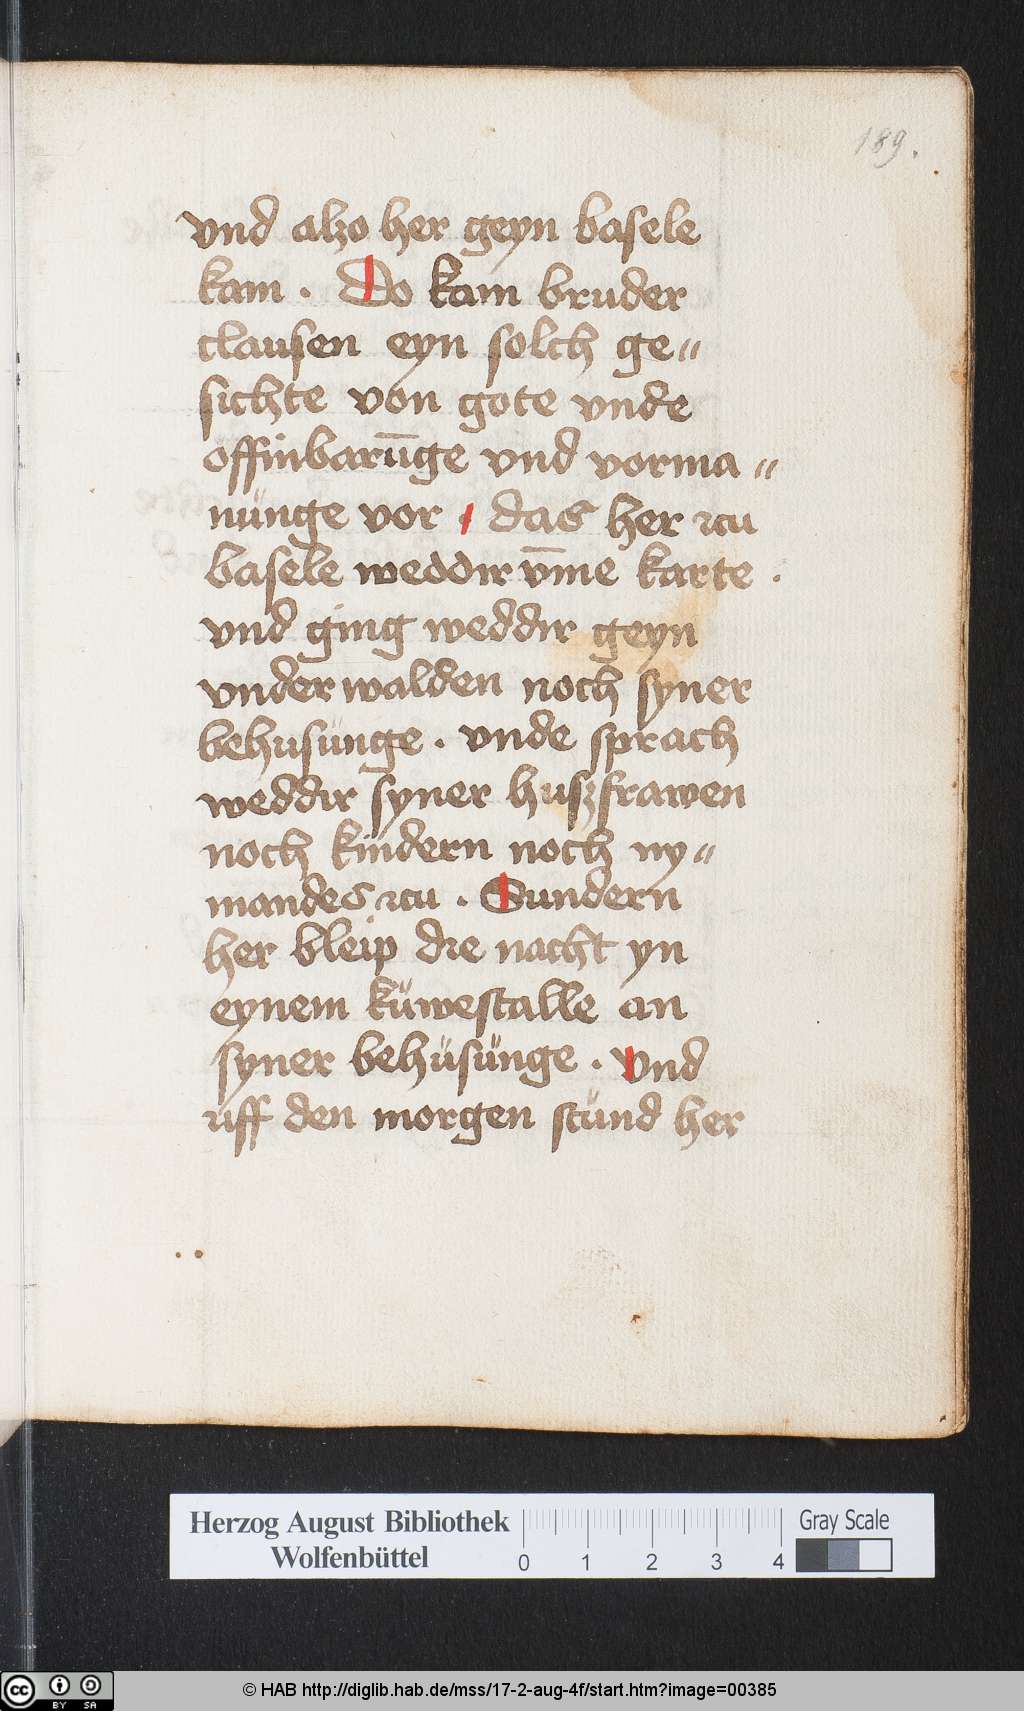 189.
vnd alzo her geyn basele
kam . Do kam bruder
clausen eyn solch ge„
sichte von gote vnde
offinbarūge vnd vorma„
nünge vor . das her zcu
basele weddir v̄me karte .
vnd ging weddir geyn
vnderwalden noch syner
behusünge . vnde sprach
weddir syner huszfrawen
noch kindern noch ny„
mandes zcu . Sundern
her bleip die nacht yn
eynem küwestalle an
syner behüsünge . Vnd
uff den morgen stünd her
Herzog August Bibliothek
Wolfenbüttel
0 1 2 3 4
Gray Scale
cc BY SA
© HAB http://diglib.hab.de/mss/17-2-aug-4f/start.htm?image=00385